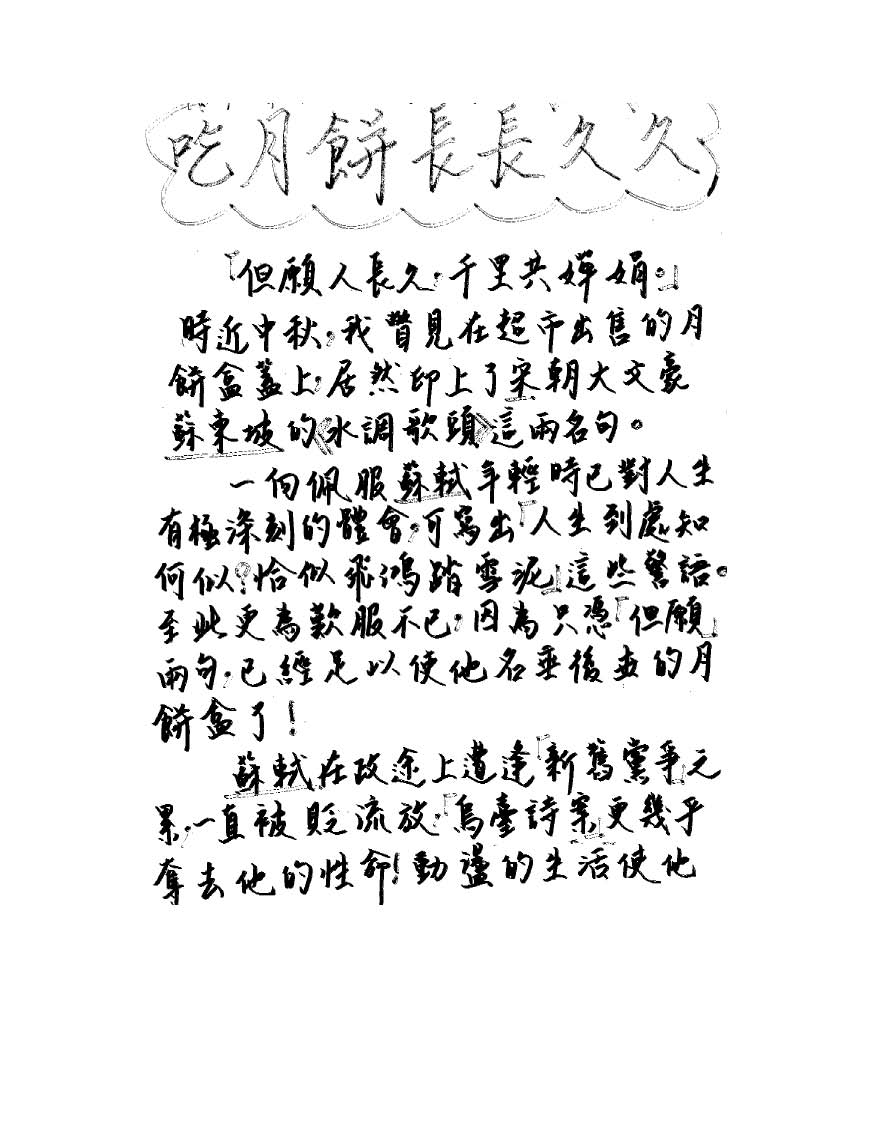 吃月餅長長久久
「但願人長久，千里共嬋娟。」
時近中秋，我瞥見在超市出售的月
餅盒蓋上，居然印上了宋朝大文豪
蘇東坡的《水調歌頭》這兩名句。
一向佩服蘇軾年輕時已對人生
有極深刻的體會，可寫出「人生到處知
何似？恰似飛鴻踏雪泥」這些警語。
至此更為歎服不已，因為只憑「但願」
兩句，已經足以使他名垂後世的月
餅盒了！
蘇軾在政途上遭逢「新舊黨爭」之
累，一直被貶流放，「烏臺詩案」更幾乎
奪去他的性命！動盪的生活使他